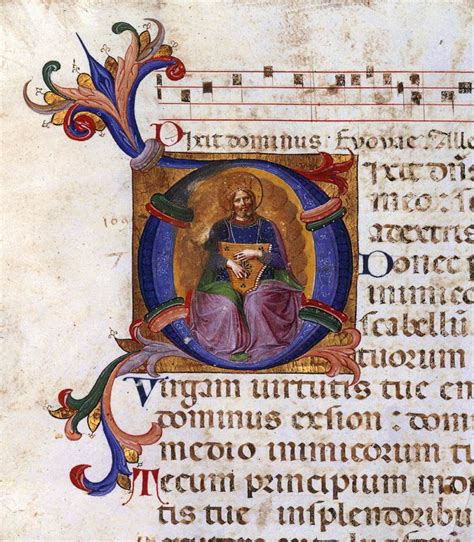 Dixit dominus : Evovae
ixit dñs
adextris
Donec
inimico
scabellũ
tuorum
Virgam virtutis tue em
dominus exsion : domi
medio inimicorum tu
Tecum principium in di
tis tue insplendoribu